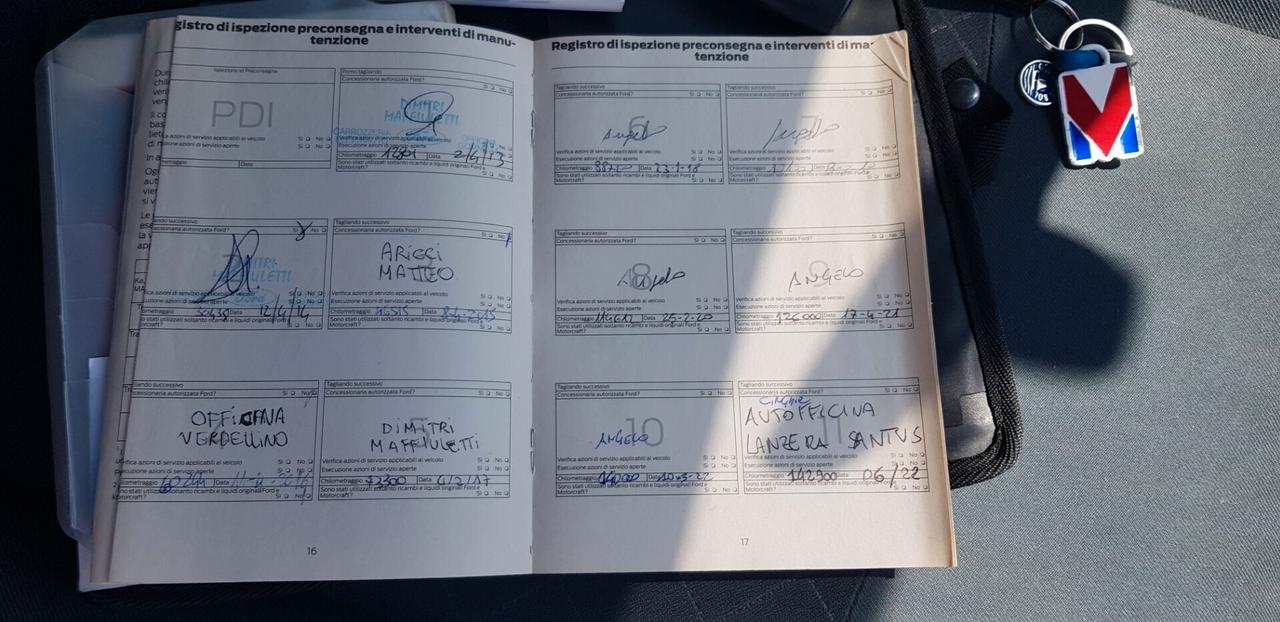 gistro di ispezione preconsegna e interventi di manu-
tenzione
Selezione ist Preconsegna
PDI
a azioni di servizio applicabili al veicolo Sì No
uzione azioni di servizio aperte Sì No
Data
Primo tagliando
Concessionaria autorizzata Ford?
Sì No
DIMITRI
MAFFIULETTI
CARROZZERIA
Verifica azioni di servizio applicabili al veicolo
Esecuzione azioni di servizio aperte
Chilometraggio Data 2/4/13
Sono stati utilizzati soltanto ricambi e liquidi originali Ford e
Motorcraft? Sì No
ando successivo
cessionaria autorizzata Ford? Sì No
Data 12/4/14
Sì No
Tagliando successivo
Concessionaria autorizzata Ford?
Sì No
ARICCI
MATTEO
Verifica azioni di servizio applicabili al veicolo Sì No
Esecuzione azioni di servizio aperte Sì No
Chilometraggio Data
Sono stati utilizzati soltanto ricambi e liquidi originali Ford e
Motorcraft? Sì No
liando successivo
ncessionaria autorizzata Ford? Sì No
OFFICINA
VERDELLINO
Verifica azioni di servizio applicabili al veicolo Sì No
secuzione azioni di servizio aperte Sì No
Data
ono stati utilizzati soltanto ricambi e liquidi originali Ford e
Motorcraft? Sì No
Tagliando successivo
Concessionaria autorizzata Ford? Sì No
DIMITRI
MAFFIULETTI
Verifica azioni di servizio applicabili al veicolo Sì No
Esecuzione azioni di servizio aperte Sì No
Chilometraggio 72300 Data 4/2/17
Sono stati utilizzati soltanto ricambi e liquidi originali Ford e
Motorcraft? Sì No
16
Registro di ispezione preconsegna e interventi di ma
tenzione
Tagliando successivo
Concessionaria autorizzata Ford? Sì No
6
Angelo
Verifica azioni di servizio applicabili al veicolo Sì No
Esecuzione azioni di servizio aperte Sì No
Chilometraggio Data 23-1-18
Sono stati utilizzati soltanto ricambi e liquidi originali Ford e
Motorcraft? Sì No
Tagliando successivo
Concessionaria autorizzata Ford? Sì No
7
Verifica azioni di servizio applicabili al veicolo Sì No
Esecuzione azioni di servizio aperte Sì No
Sono stati utilizzati soltanto ricambi e liquidi originali Ford e
Motorcraft? Sì No
Tagliando successivo
Concessionaria autorizzata Ford? Sì No
8
Angelo
Verifica azioni di servizio applicabili al veicolo Sì No
Esecuzione azioni di servizio aperte Sì No
Chilometraggio Data 25-2-20
Sono stati utilizzati soltanto ricambi e liquidi originali Ford e
Motorcraft? Sì No
Tagliando successivo
Concessionaria autorizzata Ford? Sì No
9
ANGELO
Verifica azioni di servizio applicabili al veicolo Sì No
Esecuzione azioni di servizio aperte Sì No
Chilometraggio 126000 Data 17-4-21
Sono stati utilizzati soltanto ricambi e liquidi originali Ford e
Motorcraft? Sì No
Tagliando successivo
Concessionaria autorizzata Ford? Sì No
10
ANGELO
Verifica azioni di servizio applicabili al veicolo Sì No
Esecuzione azioni di servizio aperte Sì No
Chilometraggio Data
Sono stati utilizzati soltanto ricambi e liquidi originali Ford e
Motorcraft? Sì No
Tagliando successivo
Concessionaria autorizzata Ford? Sì No
11
AUTOFFICINA
LANZERA SANTUS
Verifica azioni di servizio applicabili al veicolo Sì No
Esecuzione azioni di servizio aperte Sì No
Chilometraggio 142900 Data 06/22
Sono stati utilizzati soltanto ricambi e liquidi originali Ford e
Motorcraft? Sì No
17